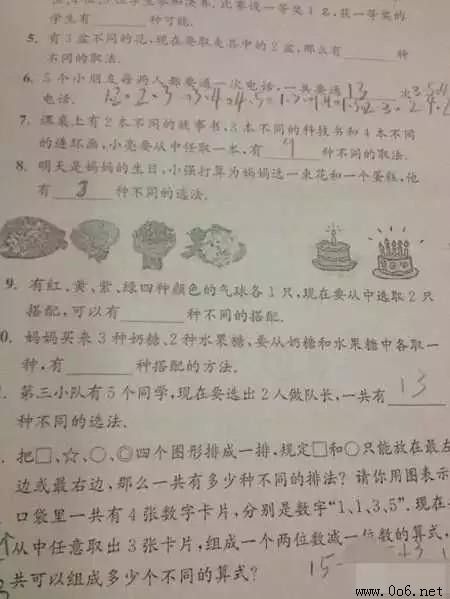 学生有______种可能.
5. 有3盆不同的花,现在要取走其中的2盆,那么有______种
不同的取法.
6. 5个小朋友每两人都要通一次电话,一共要通 13 次
电话.
7. 课桌上有2本不同的故事书,3本不同的科技书和4本不同
的连环画,小亮要从中任取一本,有 9 种不同的取法.
8. 明天是妈妈的生日,小强打算为妈妈选一束花和一个蛋糕,他
有 8 种不同的选法.
9. 有红、黄、紫、绿四种颜色的气球各1只,现在要从中选取2只
搭配,可以有______种不同的搭配.
0. 妈妈买来3种奶糖、2种水果糖,要从奶糖和水果糖中各取一
种,有______种搭配的方法.
. 第三小队有5个同学,现在要选出2人做队长,一共有 13
种不同的选法.
. 把□、☆、○、◎四个图形排成一排,规定□和○只能放在最左
边或最右边,那么一共有多少种不同的排法?请你用图表示
口袋里一共有4张数字卡片,分别是数字“1、1、3、5”.现在
从中任意取出3张卡片,组成一个两位数减一位数的算式,
共可以组成多少个不同的算式? 15-
www.0o6.net